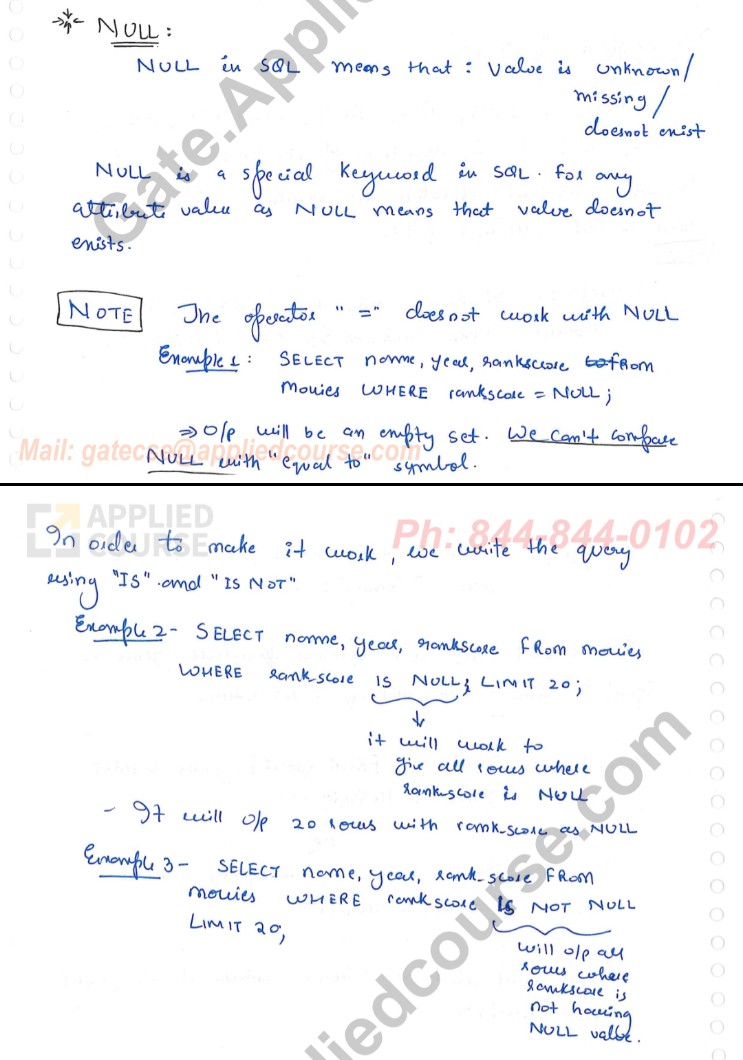 NULL:
NULL in SQL means that : Value is unknown/
missing /
doesnot exist
NULL is a special keyword in SQL. For any
attribute value as NULL means that value doesnot
exists.
NOTE The operator "=" doesnot work with NULL
Example 1: SELECT name, year, rankscore FROM
movies WHERE rankscore = NULL;
⇒ O/p will be an empty set. We can't compare
Mail: gatecse@appliedcourse.com
NULL with "equal to" symbol.
APPLIED
COURSE
Ph: 844-844-0102
In order to make it work, we write the query
using "IS" and "IS NOT"
Example 2 - SELECT name, year, rankscore FROM movies
WHERE rank_score IS NULL; LIMIT 20;
it will work to
give all rows where
rank_score is NULL
- It will o/p 20 rows with rank_score as NULL
Example 3 - SELECT name, year, rank_score FROM
movies WHERE rankscore IS NOT NULL
LIMIT 20;
will o/p all
rows where
rankscore is
not having
NULL value.
Gate.Applie
liedcourse.com